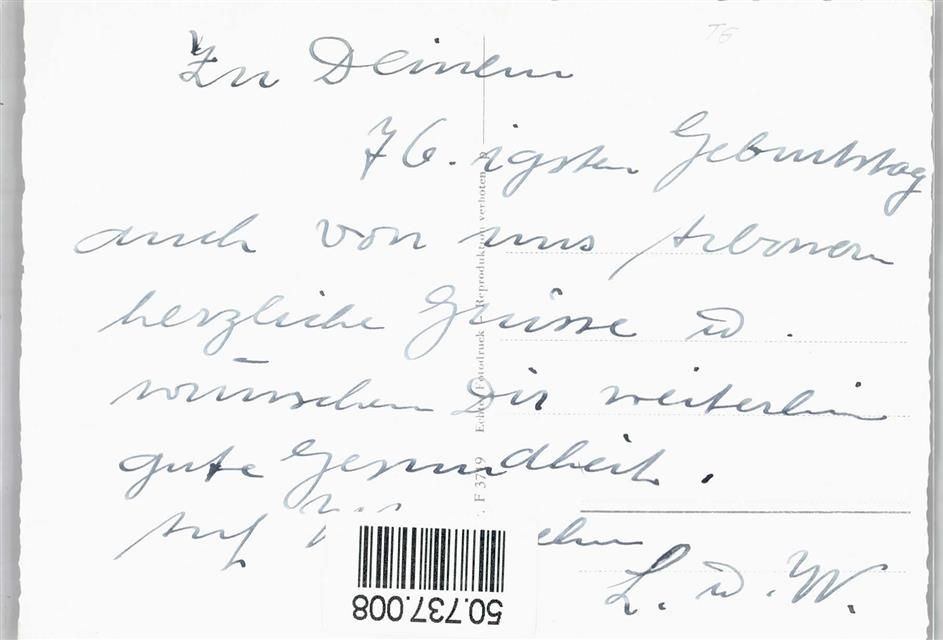 TG
Zu Deinem
76.igsten Geburtstag
auch von uns Arbonern
herzliche Grüsse u.
wünschen Dir weiterhin
gute Gesundheit.
Auf
L. u. W.
F 3749 Echte Fotodruck – Reproduktion verboten
50.737.008